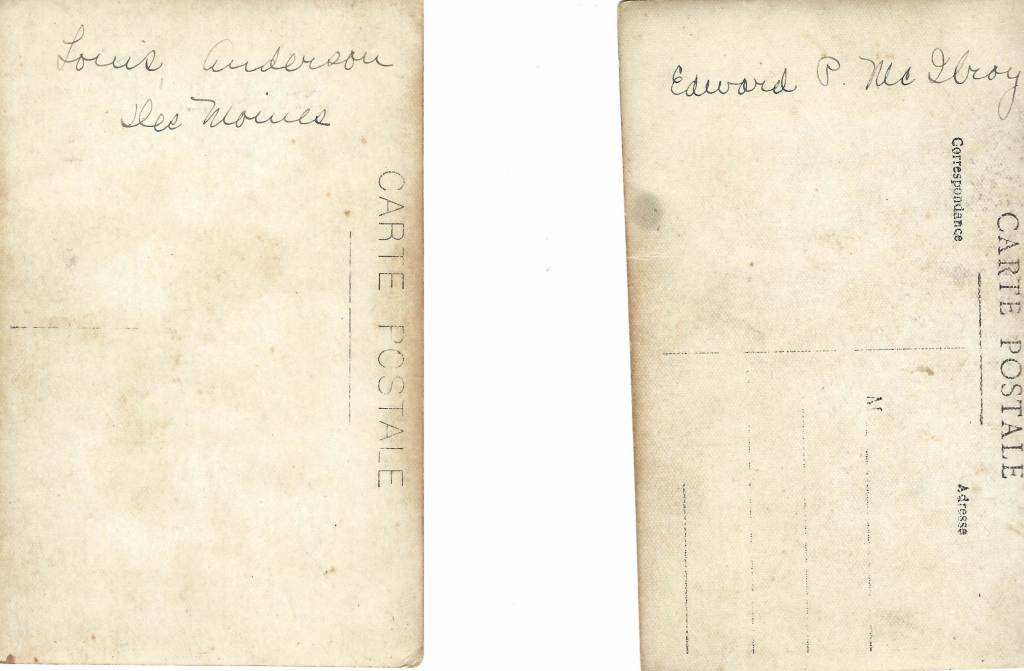 Louis Anderson
Des Moines
CARTE POSTALE
Edward P. McIlroy
Correspondance
CARTE POSTALE
M
Adresse